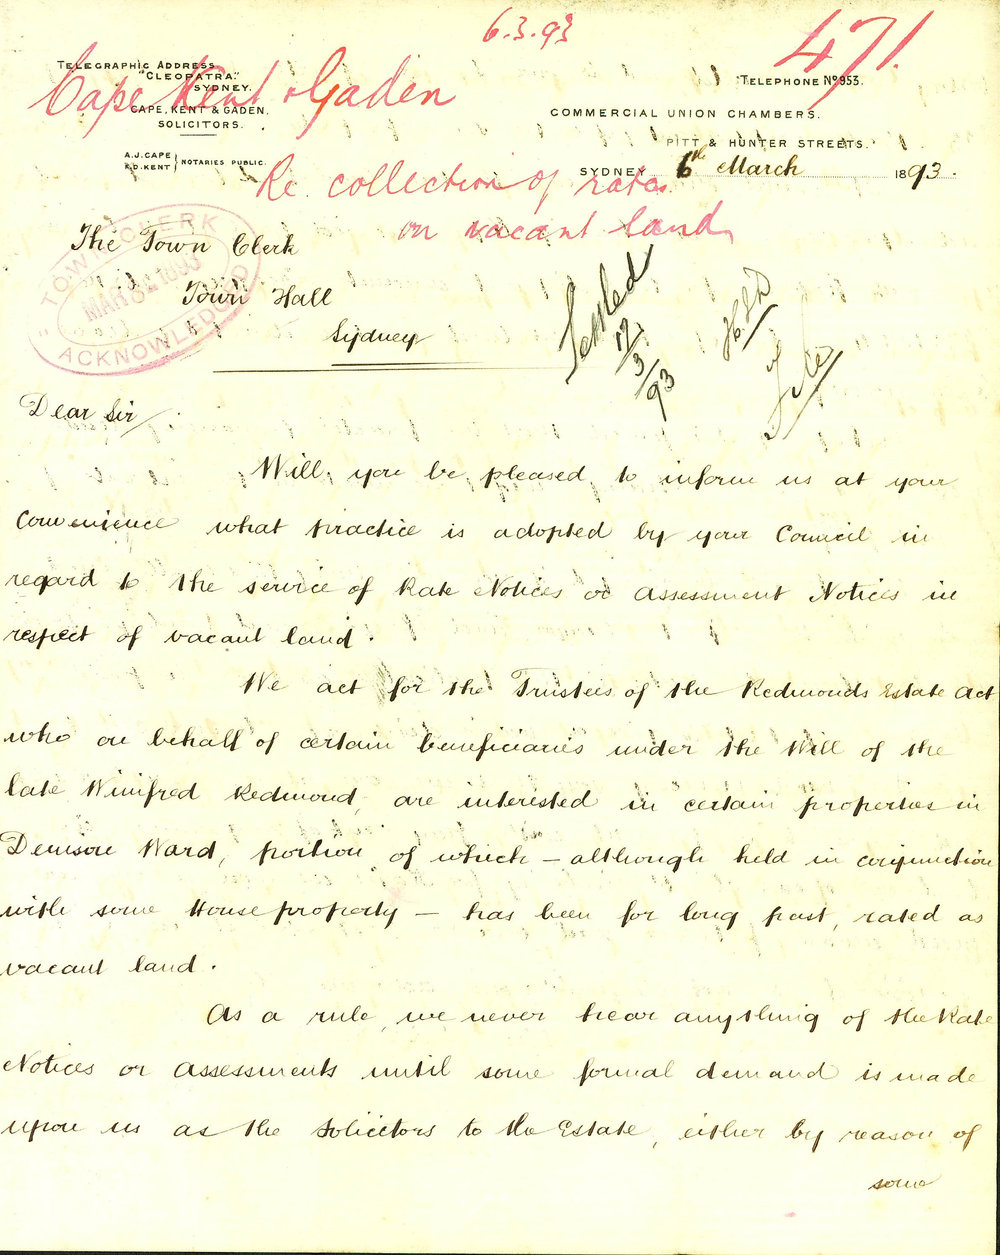 6.3.93
471.
TELEGRAPHIC ADDRESS
"CLEOPATRA."
SYDNEY.
TELEPHONE No 953.
Cape Kent & Gaden
CAPE, KENT & GADEN.
SOLICITORS.
COMMERCIAL UNION CHAMBERS.
PITT & HUNTER STREETS.
A.J. CAPE
K.D. KENT } NOTARIES PUBLIC.
SYDNEY 6th March 1893.
Re collection of rates
on vacant land
TOWN CLERK
MAR 8 1893
ACKNOWLEDGED
The Town Clerk
Town Hall
Sydney
17/3/93
Dear Sir
Will you be pleased to inform us at your
convenience what practice is adopted by your Council in
regard to the service of Rate Notices or Assessment Notices in
respect of vacant land.
We act for the Trustees of the Redmonds Estate Act
who on behalf of certain beneficiaries under the Will of the
late Winifred Redmond, are interested in certain properties in
Denison Ward, portion of which – although held in conjunction
with some House property – has been for long past, rated as
vacant land.
As a rule, we never hear anything of the Rate
Notices or Assessments until some formal demand is made
upon us as the Solicitors to the Estate, either by reason of
some